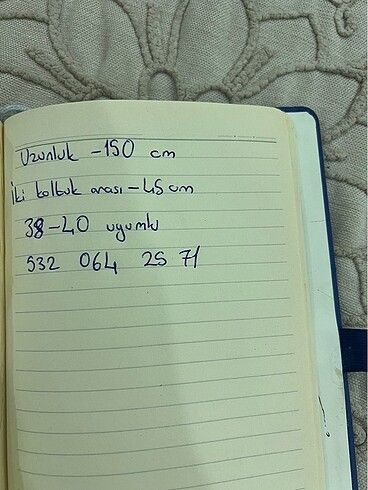 Uzunluk - 150 cm
İki koltuk arası - 45 cm
38-40 uyumlu
532 064 25 71